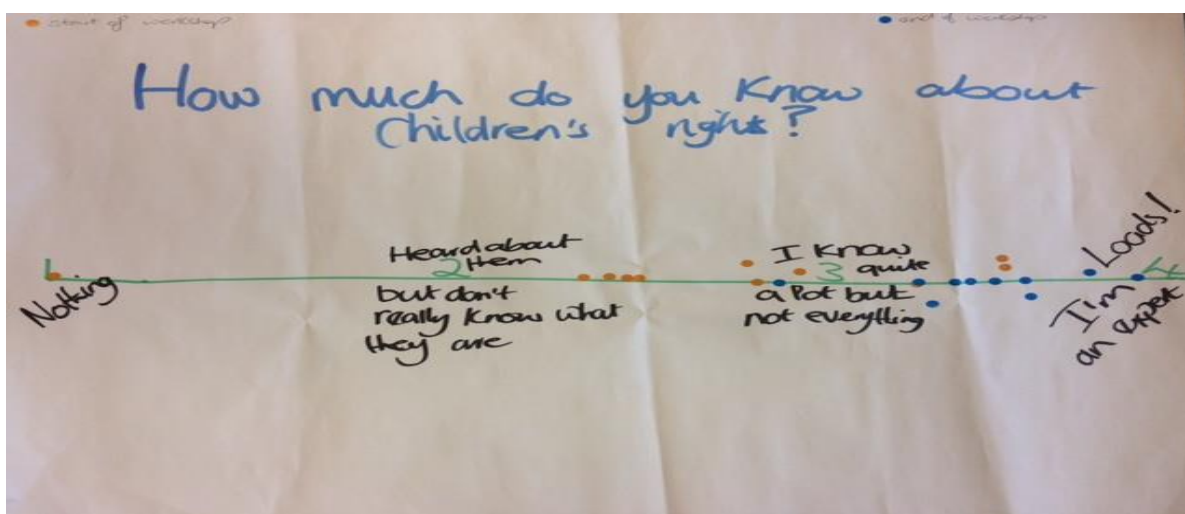 start of workshop
end of workshop
How much do you know about
Children's right?
Nothing
Heard about
2 them
but don't
really know what
they are
I know
3 quite
a lot but
not everything
Loads!
4
I'm
an expert